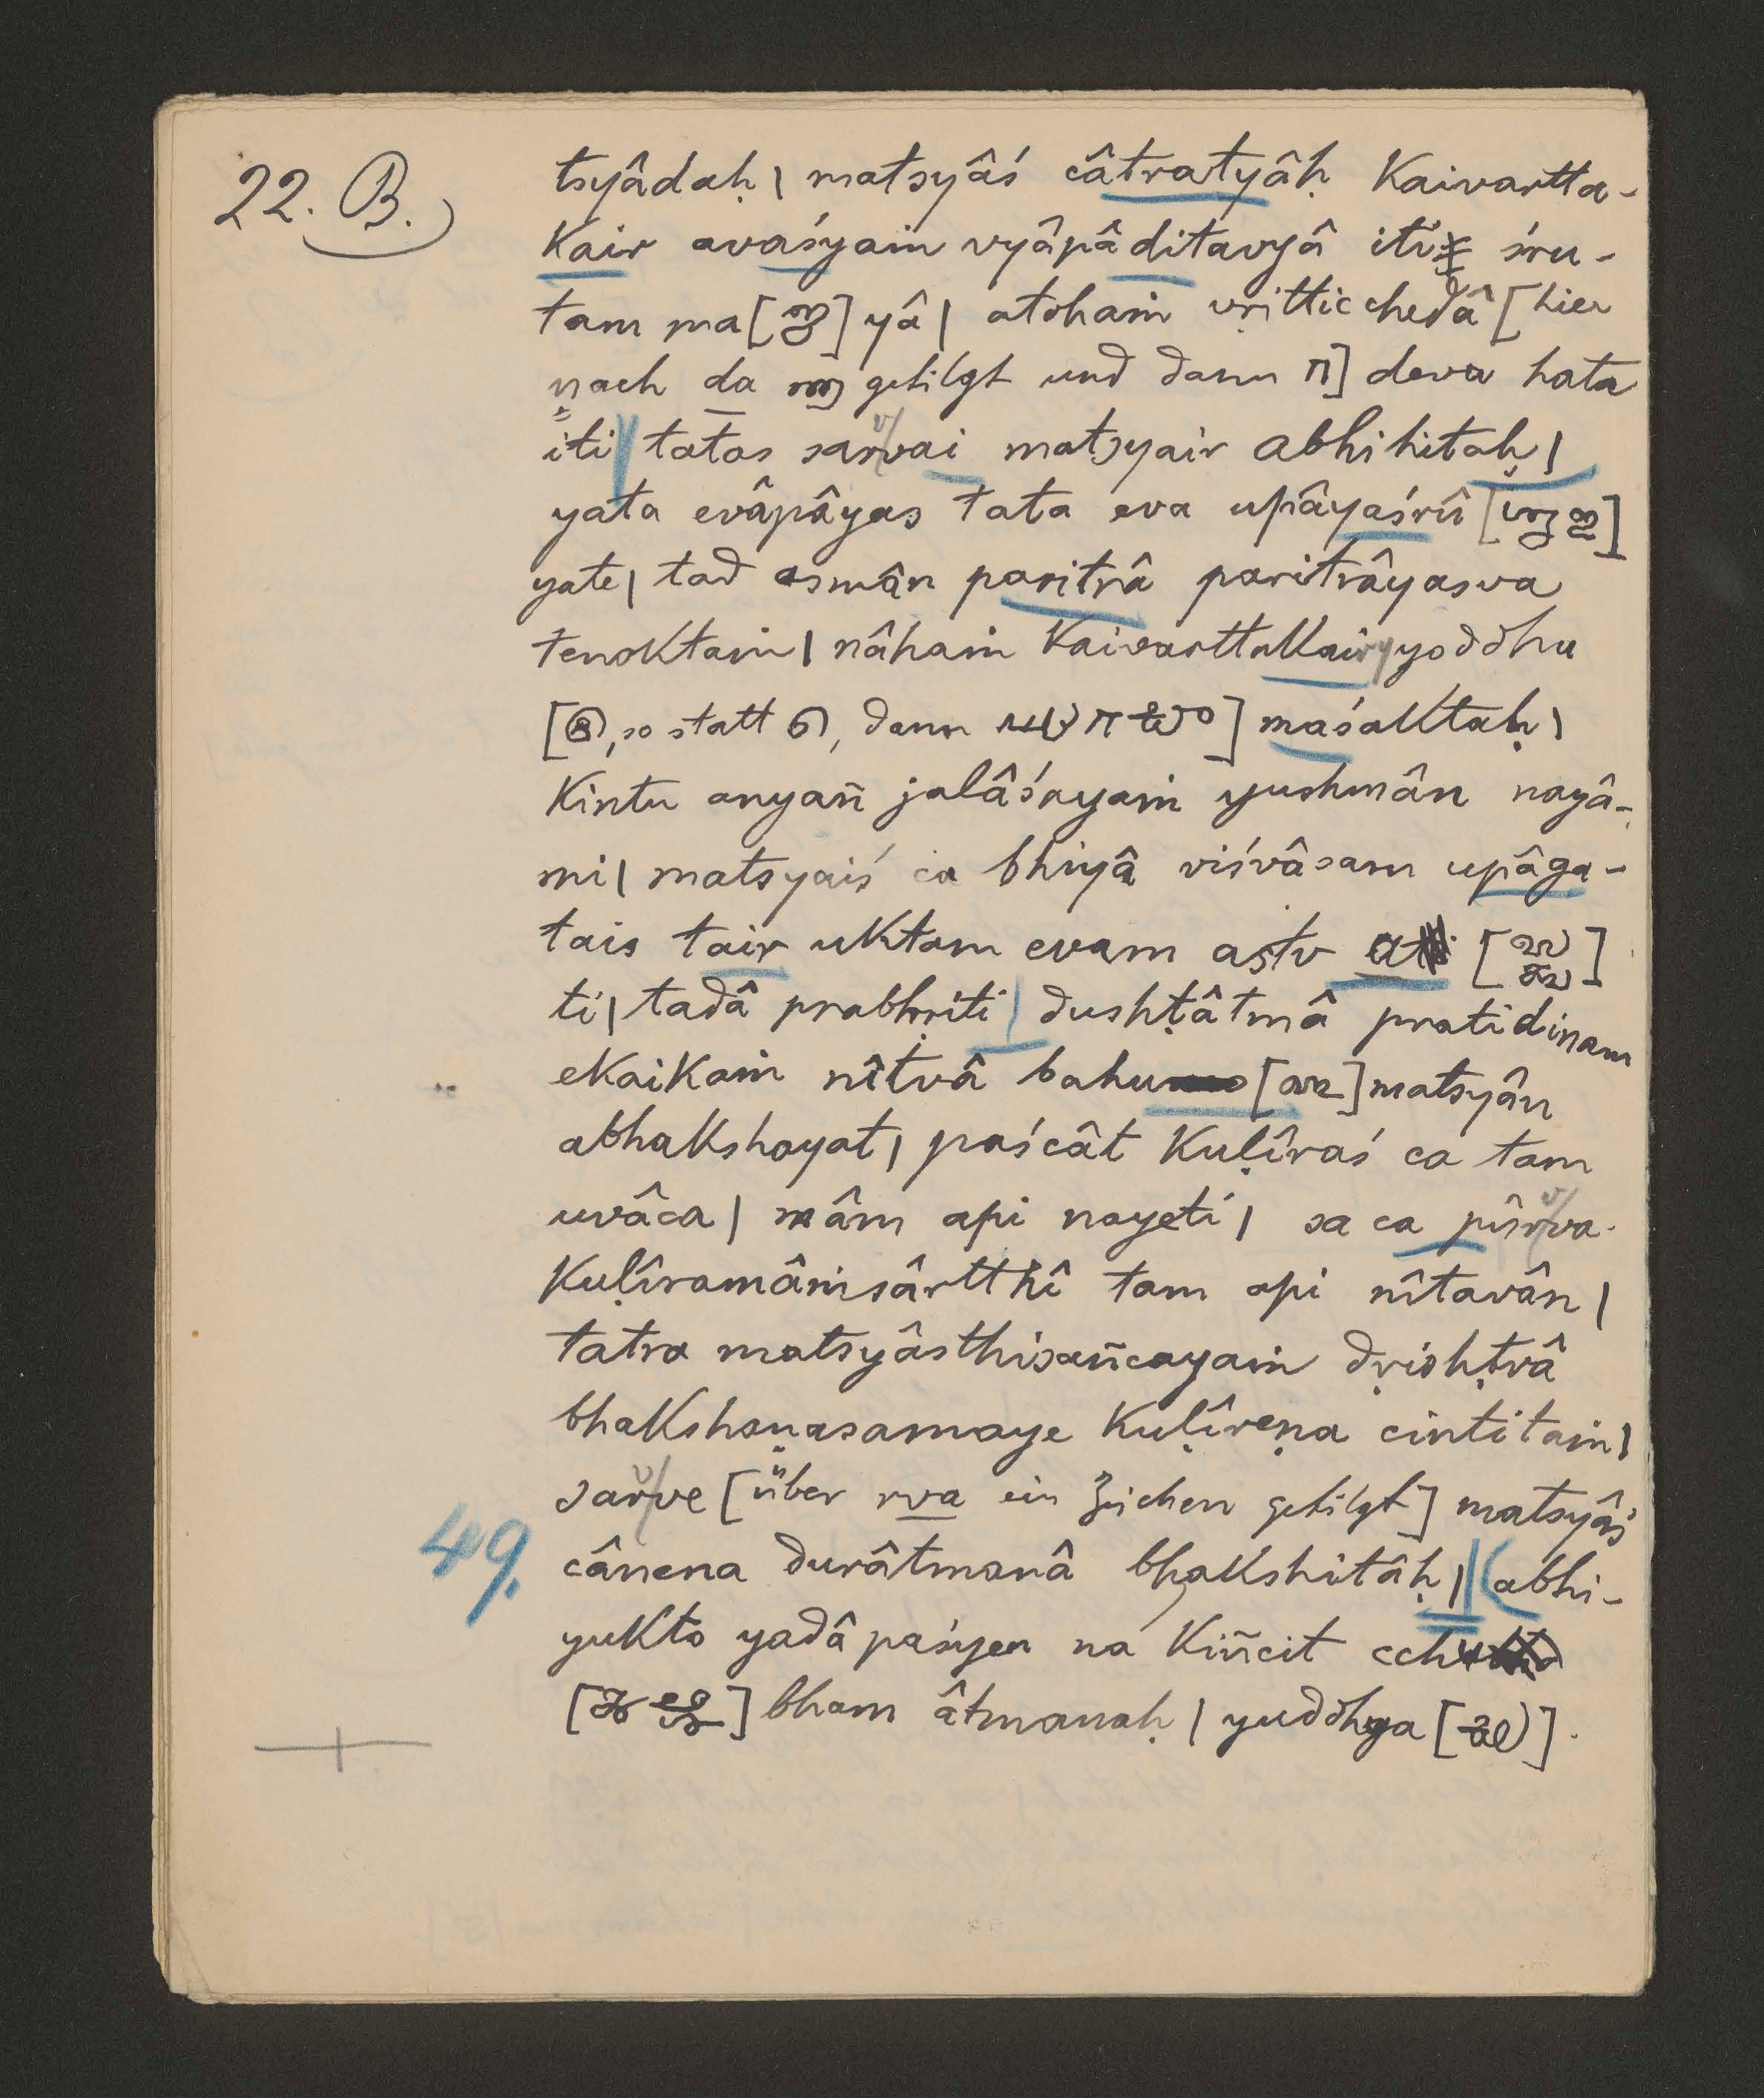 22. B.
tsyâdaḥ | matsyâś câtratyâḥ Kaivartta-
Kair avaśyaṁ vyâpâditavyâ iti śru-
tam ma[] yâ | atohaṁ vṛitticchedâ [hier
nach da getilgt und dann π] deva hata
iti tatas sarvai matsyair abhihitaḥ |
yata evâpâyas tata eva upâyaśrû []
yate | tad asmân paritrâ paritrâyasva
tenoktaṁ | nâhaṁ KaivarttaKair yoddhu
[, so statt , dann ] maśaktaḥ |
Kintu anyañ jalâśayaṁ yushmân nayâ-
mi | matsyaiś ca bhiyâ viśvâsam upâga-
tais tair uktam evam astv []
ti | tadâ prabhṛiti | dushṭâtmâ pratidinam
eKaiKaṁ nîtvâ bahu [] matsyân
abhakshayat | paścât Kuḷîraś ca tam
uvâca | mâm api nayeti | sa ca pûrva-
Kuḷîramâṁsârtthî tam api nîtavân |
tatra matsyâsthisañcayaṁ dṛishṭvâ
bhakshaṇasamaye Kuḷîreṇa cintitaṁ |
sarve [über rva ein Zeichen getilgt] matsyâś
49. cânena durâtmanâ bhakshitâḥ || (abhi-
yukto yadâ paśyen na Kiñcit cch
[] bham âtmanaḥ | yuddhya [].